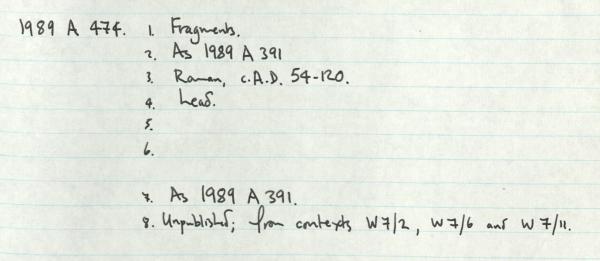 1989 A 474. 1. Fragments.
2. As 1989 A 391
3. Roman, c.A.D. 54-120.
4. Lead.
5.
6.
7. As 1989 A 391.
8. Unpublished; from contexts W7/2, W7/6 and W7/11.